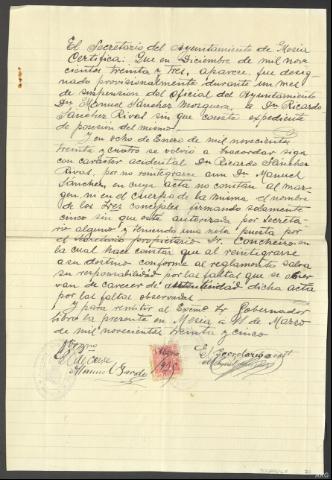 El Secretario del Ayuntamiento de Mesia
Certifica: Que en Diciembre de mil nove-
cientos treinta y tres, aparece fue desig-
nado provisionalmente durante un mes
de suspension del oficial del Ayuntamiento
Dn Manuel Sánchez Mosquera, a Dn Ricardo
Sánchez Rival sin que conste expediente
de posesion del mismo.
Y en ocho de Enero de mil novecientos
treinta y cuatro se volvió a acordar siga
con carácter accidental Dn Ricardo Sánchez
Rival, por no reintegrarse aun Dn Manuel
Sánchez, en cuya acta no constan al mar-
gen ni en el cuerpo de la misma el nombre
de los tres concejales firmando solamente
cinco sin que esté autorizada por secreta-
rio alguno y teniendo una nota puesta por
el Secretario propietario Sr. Concheiro en
la cual hace constar que al reintegrarse
a su destino conforme al reglamento salva
su responsabilidad por las faltas que se obser-
van de carecer de autenticidad dicha acta
por las faltas observadas
Y para remitir al Excmo Sr Gobernador
libro la presente en Mesia a de Marzo
de mil novecientos treinta y cinco
El Alcalde
El Secretario